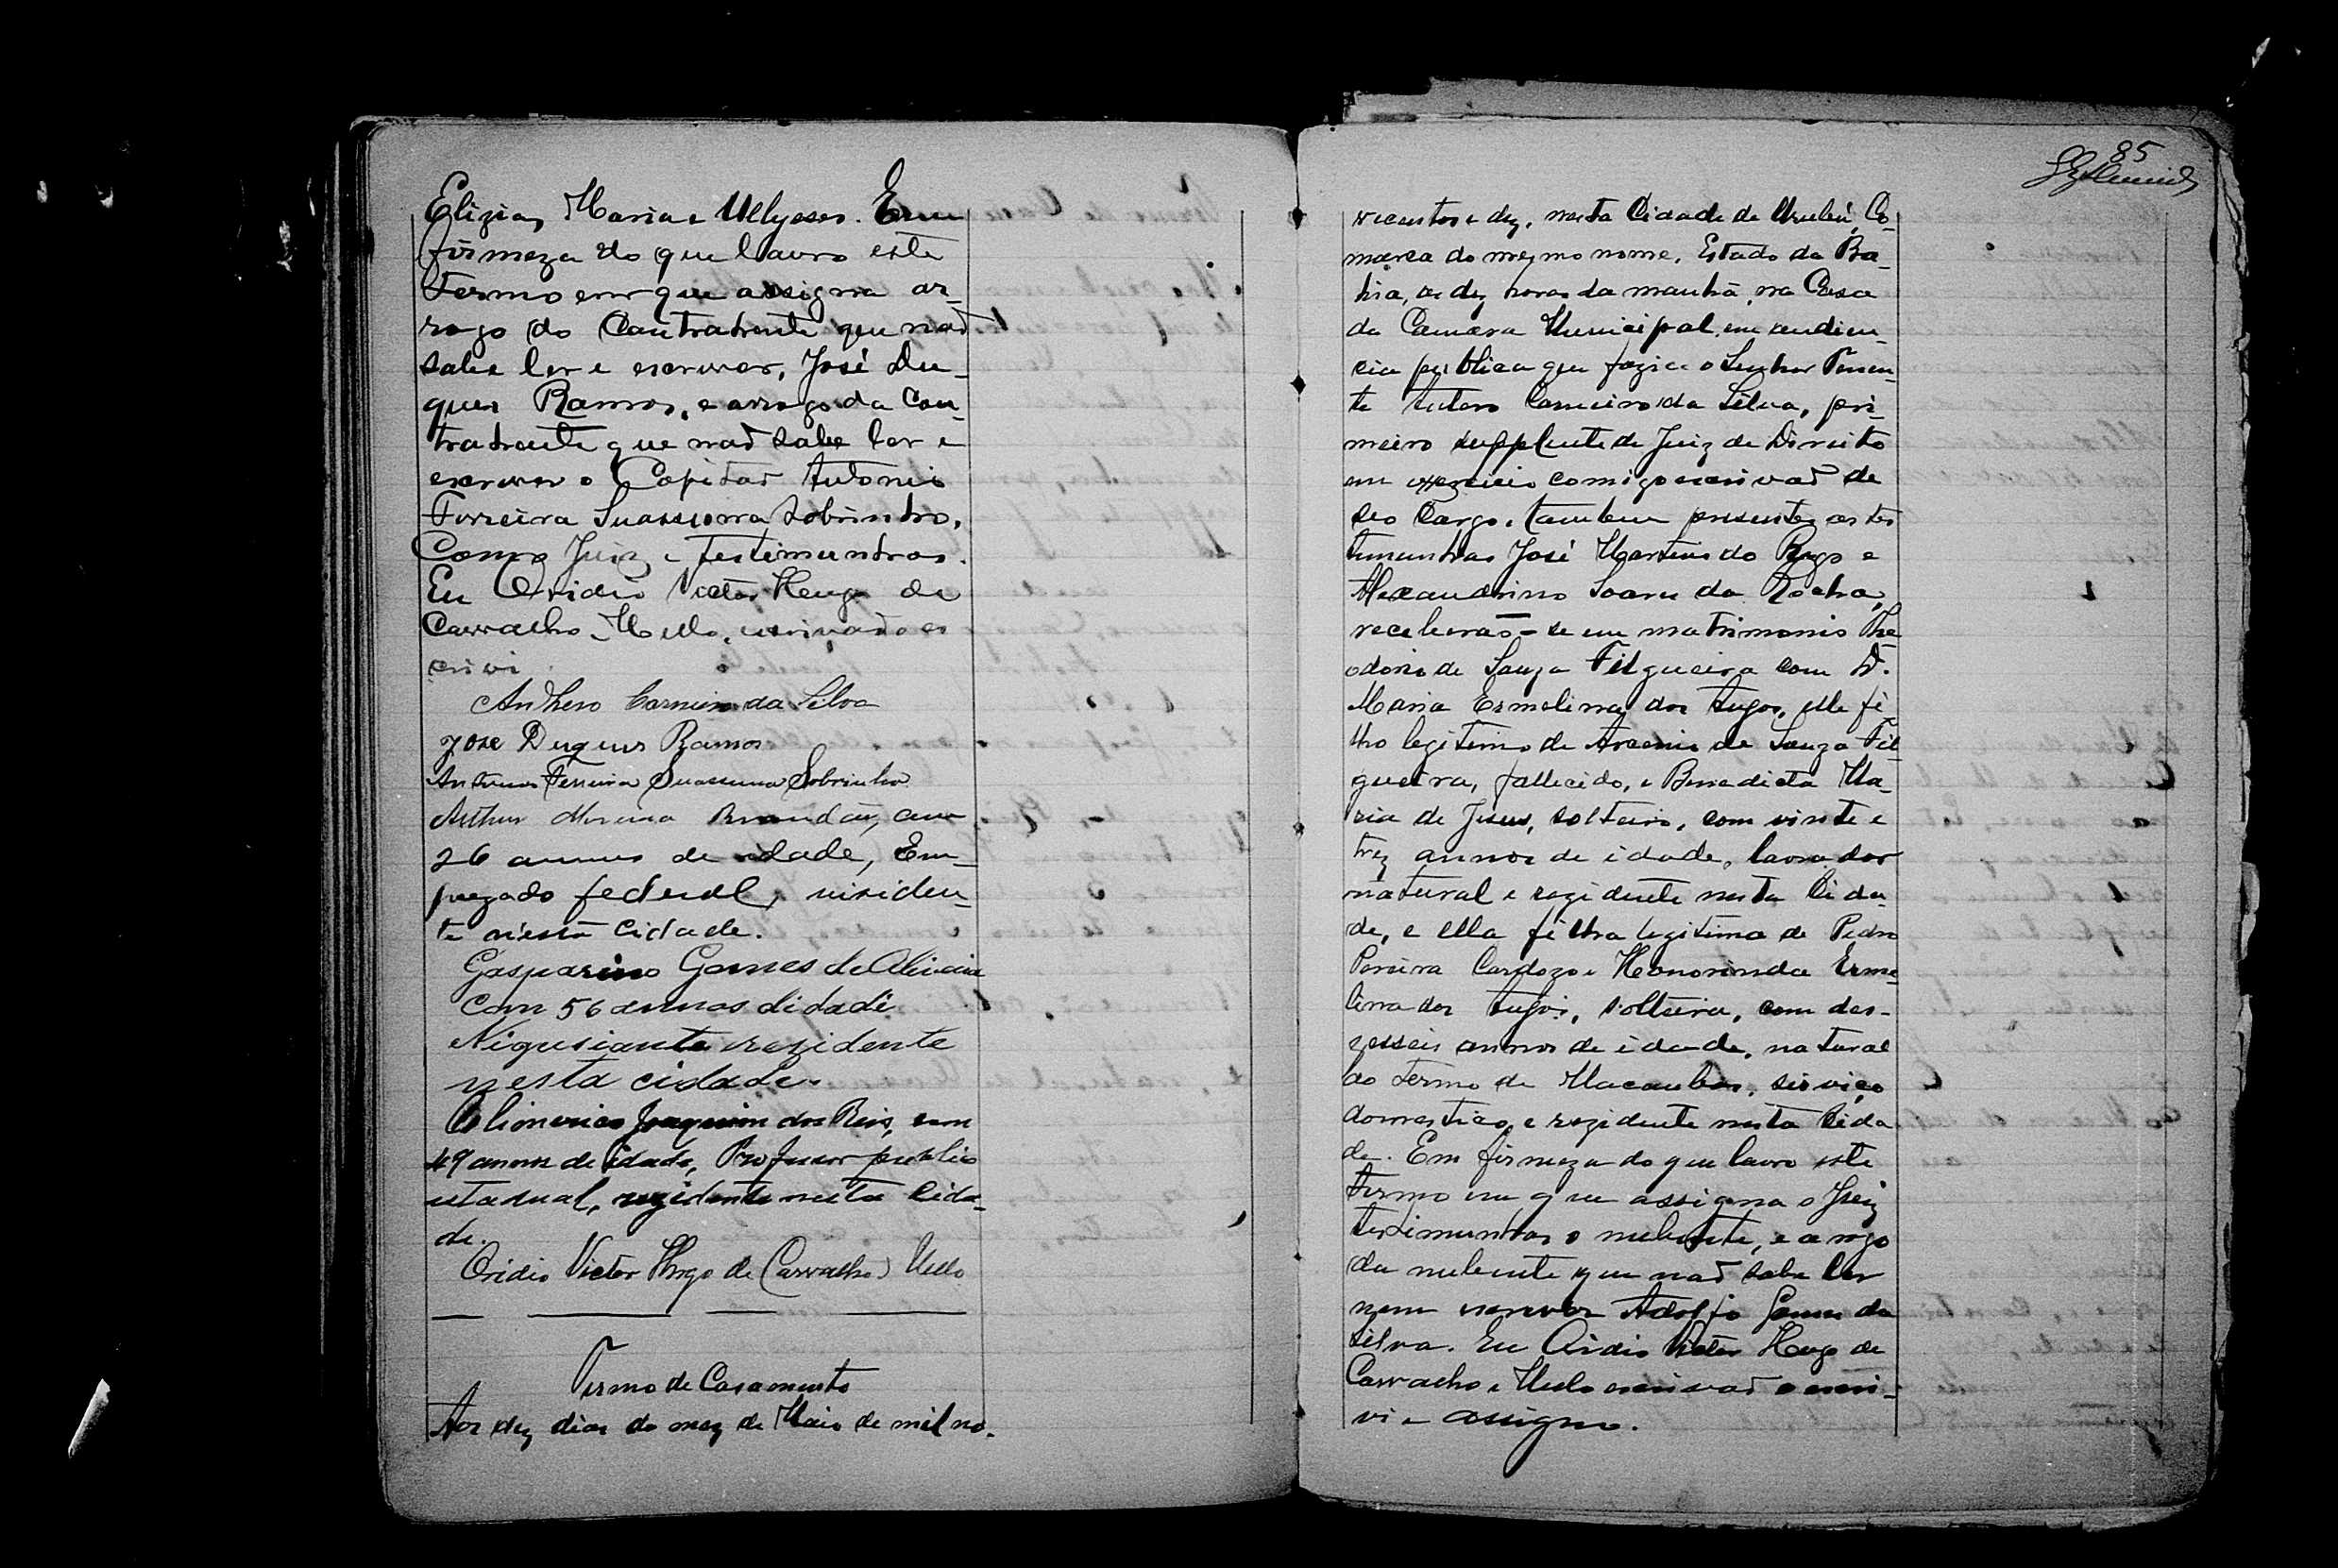 Elizia, Maria e Ullysses. E em
firmeza do que lavro este
termo em que assigna ar-
rogo do Contrahente que não
sabe ler e escrever, José Du-
ques Ramos, e arrogo da Con-
trahente que não sabe ler e
escrever o Capitão Antonio
Ferreira Suassuna Sobrinho,
Como Juiz e testimunhas.
Eu Ovidio Victor Hugo de
Carvalho Mello, escrivão o es
crivi
Anthero Carneiro da Silva
José Duques Ramos
Antonio Ferreira Suassuna Sobrinho
Arthur Moreira Brandão, com
26 annos de idade, Em-
pregado federal, residen-
te nesta Cidade.
Gasparino Gomes de Oliveira
Com 56 annos di dadi
Nigusiante rezidente
nesta cidade.
Joaquim dos Reis, com
49 annos de idade, Professor publico
estadual, rezidente nesta Cida-
de.
Ovidio Victor Hugo de Carvalho Mello
Termo de Casamento
Aos dez dias do mez de Maio de mil no-
85
vecentos e dez, nesta Cidade de Urubú, Co-
marca do mesmo nome, Estado da Ba-
hia, as dez horas da manhã, na Casa
da Camara Municipal, em audien-
cia publica que fazia o Senhor Tenen-
te Antero Carneiro da Silva, pri-
meiro supplente de Juiz de Direito
em exercicio comigo escrivão de
seo Cargo, tambem presentes as tes
timunhas José Martins do Rego e
Alexandrino Soares da Rocha,
receberão-se em matrimonio The
odorio de Souza Filgueira com D.
Maria Ermelina dos Anjos, elle fi
lho legitimo de Arcenio de Souza Fil
gueira, fallecido, e Benedicta Ma-
ria de Jesus, solteiro, com vinte e
trez annos de idade, lavrador
natural e rezidente nesta Cida-
de, e ella filha legitima de Pedro
Pereira Cardozo e Honorinda Erme
lina dos Anjos, solteira, com des-
esseis annos de idade, natural
do termo de Macaubas, serviço
domestico, e rezidente nesta Cida
de. Em firmeza do que lavro este
termo em que assigna o Juiz
testimunhas o nubente, e a rogo
da nubente que não sabe ler
nem escrever Adolfo Gomes da
Silva. Eu Ovidio Victor Hugo de
Carvalho e Mello escrivão o escri-
vi e assigno.